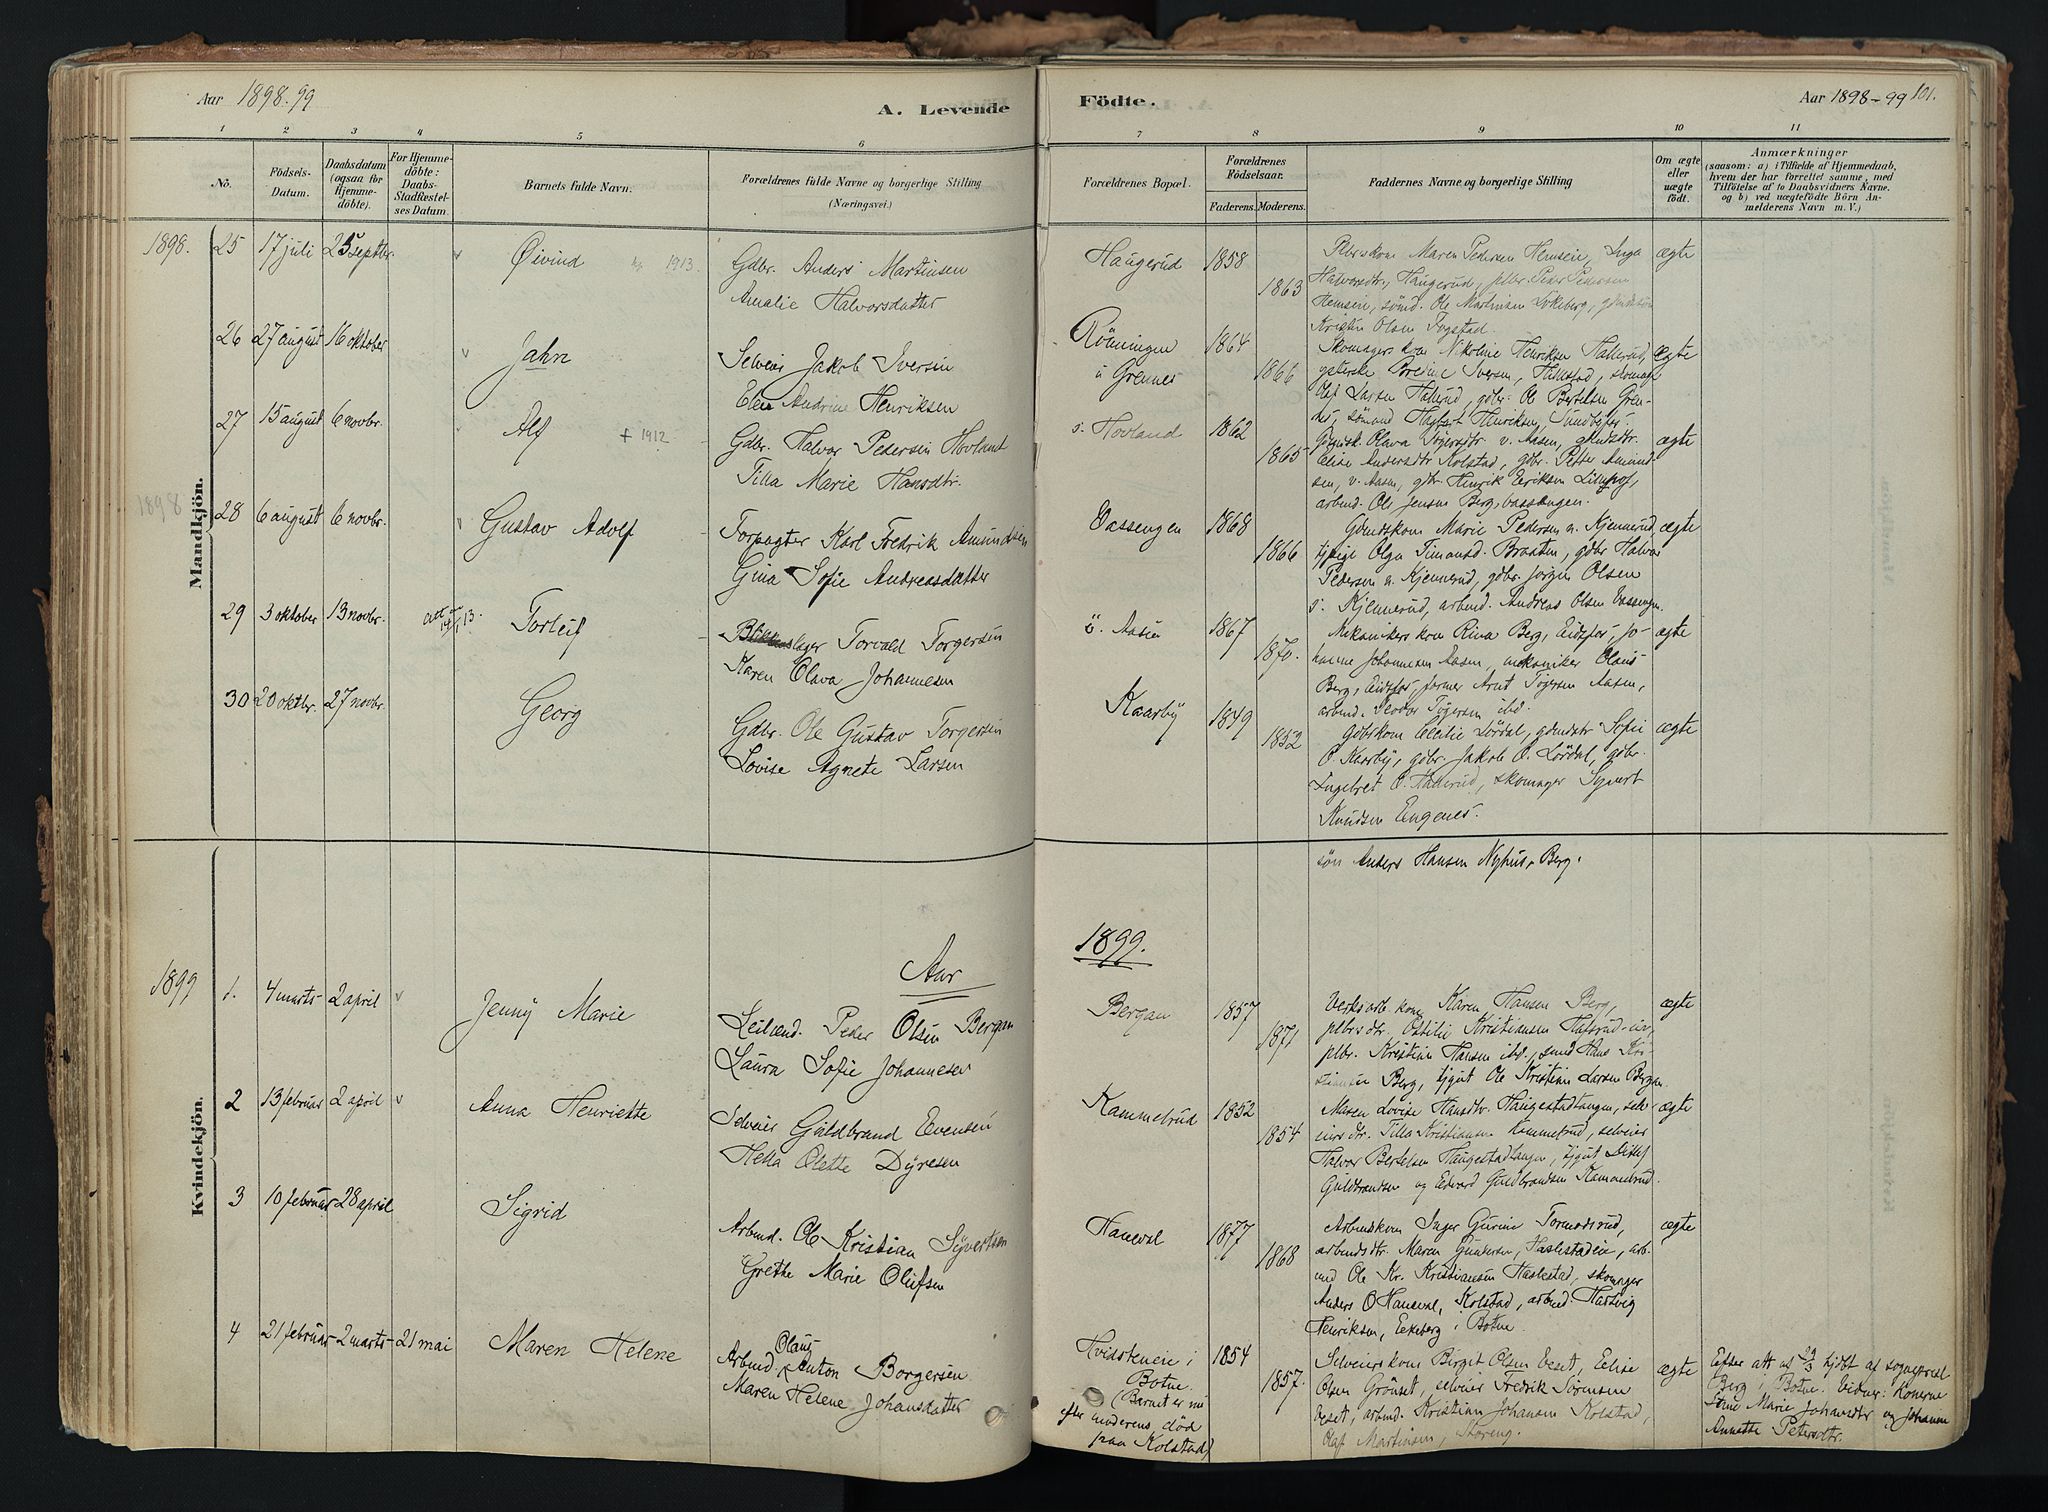 Aar 1898-99
A. Levende
Födte.
Aar 1898-99 101.
1 2 3 4 5 6 7 8 9 10 11
No.
Födsels-
Datum.
Daabsdatum
(ogsaa for
Hjemme-
döbte).
For Hjemme-
döbte:
Daabs-
Stadfæstel-
ses Datum.
Barnets fulde Navn.
Forældrenes fulde Navne og borgerlige Stilling
(Næringsvei.)
Forældrenes Bopæl.
Forældrenes
Födselsaar.
Faderens. Moderens.
Faddernes Navne og borgerlige Stilling
Om ægte
eller
uægte
født.
Anmærkninger
(saasom: a) i Tilfælde af Hjemmedaab,
hvem der har forrettet samme, med
Tilföielse af to Daabsvidners Navne.
og b) ved uægtefödte Börn An-
melderens Navn m. V.)
Mandkjön.
1898. 25 17 juli 25 septbr. Øivind 1913.
Gdbr. Anders Martinsen
Amalie Halvorsdatter
Haugerud 1858 1863
Plbrskone Maren Pedersen Hemsein, Inga
Halvorsdtr., Haugerud, plbr. Peder Pedersen
Hemsein, sömd. Ole Martinsen Lökeberg,
Kristin Olsen Fogstad.
ægte
26 27 august 16 oktober Jahn
Selveier Jakob Iversen
Elen Andrine Henriksen
Rönningen
u Grennes 1864 1866
Skomagerskone Nikoline Henriksen Hallerud,
Bredine Iversen, Hallerud, skomager
Olaf Larsen Hallerud, gdbr. Ole Bertelsen Gren-
nes, sömand Hagbart Henriksen, Sundbyfos.
ægte
27 15 august 6 novbr. Alf † 1912
Gdbr. Halvor Pedersen Hovland
Tilla Marie Hansdtr.
s. Hovland 1862 1865
Olava v. Aasen, gdmdsdtr.
Elise Andersdtr Kolstad, gdbr. Petter Amund-
sen, v. Aasen, gdbr. Henrik Eriksen
arbmd. Ole Jensen Berg, Vassengen.
ægte
1898 28 6 august 6 novbr. Gustav Adolf
Forpagter Karl Fredrik Amundsen
Gina Sofie Andreasdatter
Vassengen 1868 1866
Gdmdskone Marie Pedersen n. Kjennerud,
tjpige Olga Braaten, gdbr Halvor
Pedersen n. Kjennerud, gdbr. Jörgen Olsen
s. Kjennerud, arbmd. Andreas Olsen Vassengen.
ægte
29 3 oktober 13 novbr. Torleif
Torvald Torgersen
Karen Olava Johannesen
ö. Aasen 1867 1870.
Mekanikers kone Rina Berg, Eidsfos, Jo-
hanne Johannesen Aasen, mekaniker Olaus
Berg, Eidsfos, former Arnt Aasen,
arbmd. ibd.
ægte
30 20 oktbr. 27 novbr. Georg
Gdbr. Ole Gustav Torgersen
Lovise Agnete Larsen
Kaarby 1849 1852
Gdbrskone Cecilie Lördal, gdmdsdtr Sofie
O. Kaarby, gdbr. Jakob O. Lördal, gdbr.
Ingebret O. Hallerud, skomager Syvert
Knudsen Engenes.
ægte
sön Anders Hansen Nyhus, Berg.
Aar
1899.
Kvindekjön.
1899 1. 4 marts 2 april Jenny Marie
Leilænd. Peder Olsen Bergan
Laura Sofie Johannesen
Bergan 1857 1871
Verksarb. kone Karen Hansen Berg,
plbrsdtr. Ottilie Kristiansen Hafsrud-eie,
plbr. Kristian Hansen ibd., smed Hans Kri-
stiansen Berg, tjgut Ole Kristian Larsen Bergan.
ægte
2 13 februar 2 april Anna Henriette
Selveier Guldbrand Evensen
Hella Olette Dyresen
Kammelrud 1852 1854
Maren Lovise Hansdtr. Haugestadtangen, selv-
eiersdtr. Tilla Kristiansen Kammelrud, selveier
Halvor Bertelsen Haugestadtangen, tjgut Detlef
Guldbrandsen og Edvard Guldbrandsen Kammelrud.
ægte
3 10 februar 28 april Sigrid
Arbmd. Ole Kristian Syvertsen
Grethe Marie Olufsen
Haneval 1877 1868
Arbmdskone Inger Gurine Tormodsrud,
arbmdsdtr. Maren Gundersen, Haslestadeie, arb-
md Ole Kr. Kristiansen Haslestad, skomager
Anders O Haneval, Kolstad, arbmd Hartvig
Henriksen, Eekeberg i Botne.
ægte
4 21 februar 2 marts 21 mai Maren Helene
Olaus
Arbmd. Anton Borgersen
Maren Helene Johansdatter
Hvidsteneie i
Botne.
(Barnet er nu
efter moderens död
paa Kolstad)
1854 1857.
Selveierskone Birgit Olsen Eeset, Elise
Olsen Grönset, selveier Fredrik Sörensen
Eeset, arbmd. Kristian Johansen Kolstad,
Olaf Martinsen, Storeng.
ægte
Efter att. af 29/3 hjdbt af sogneprest
Berg i Botne. Vidner: Konerne
Stine Marie Johansdtr og Johanne
Annette Petersdtr.